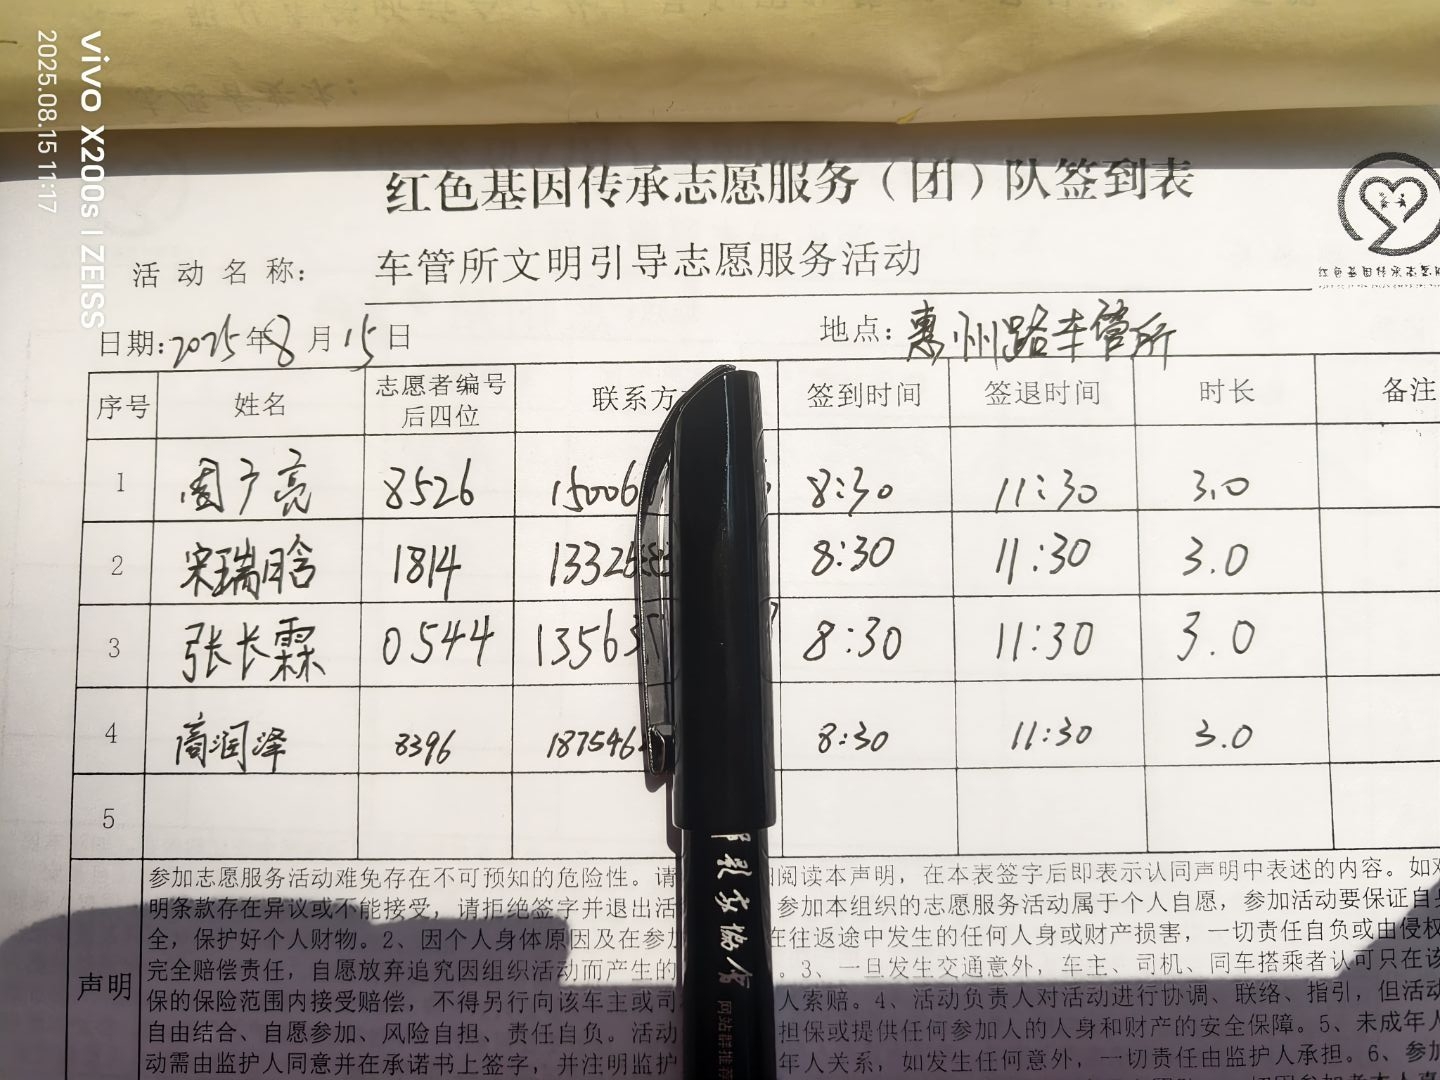 vivo X200s | ZEISS
2025.08.15 11:17
红色基因传承志愿服务（团）队签到表
活动名称： 车管所文明引导志愿服务活动
日期：2025年8月15日 地点：惠州路车管所
序号 姓名 志愿者编号后四位 联系方 签到时间 签退时间 时长 备注
1 周广亮 8526 15006 8:30 11:30 3.0
2 宋瑞晗 1814 1332 8:30 11:30 3.0
3 张长霖 0544 13563 8:30 11:30 3.0
4 商润泽 8396 187546 8:30 11:30 3.0
5
声明
参加志愿服务活动难免存在不可预知的危险性。请 阅读本声明，在本表签字后即表示认同声明中表述的内容。如
明条款存在异议或不能接受，请拒绝签字并退出活 参加本组织的志愿服务活动属于个人自愿，参加活动要保证自
全，保护好个人财物。2、因个人身体原因及在参加 在往返途中发生的任何人身或财产损害，一切责任自负或由侵权
完全赔偿责任，自愿放弃追究因组织活动而产生的 。3、一旦发生交通意外，车主、司机、同车搭乘者认可只在该
保的保险范围内接受赔偿，不得另行向该车主或司 人索赔。4、活动负责人对活动进行协调、联络、指引，但活动
自由结合、自愿参加、风险自担、责任自负。活动 担保或提供任何参加人的人身和财产的安全保障。5、未成年人
动需由监护人同意并在承诺书上签字，并注明监护 年人关系，如发生任何意外，一切责任由监护人承担。6、参加
影家协会
网站群推荐